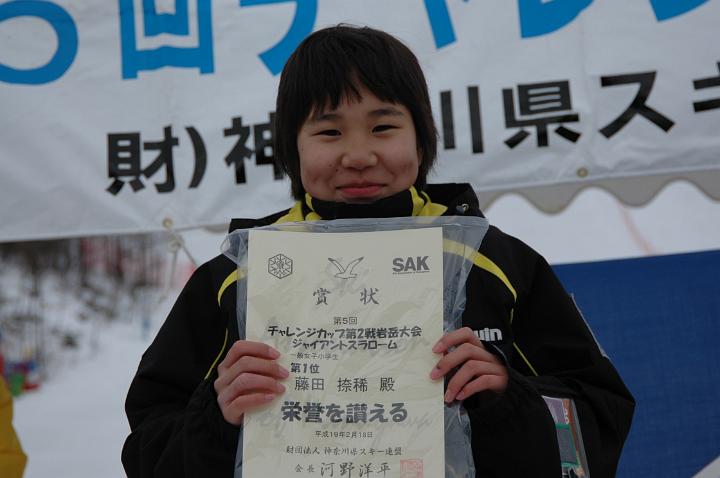 5回チャレン
財)神奈川県スキ
SAK
賞状
第5回
チャレンジカップ第2戦岩岳大会
ジャイアントスラローム
一般女子小学生
第1位
藤田 捺稀 殿
栄誉を讃える
平成19年2月18日
財団法人 神奈川県スキー連盟
会長 河野洋平
win